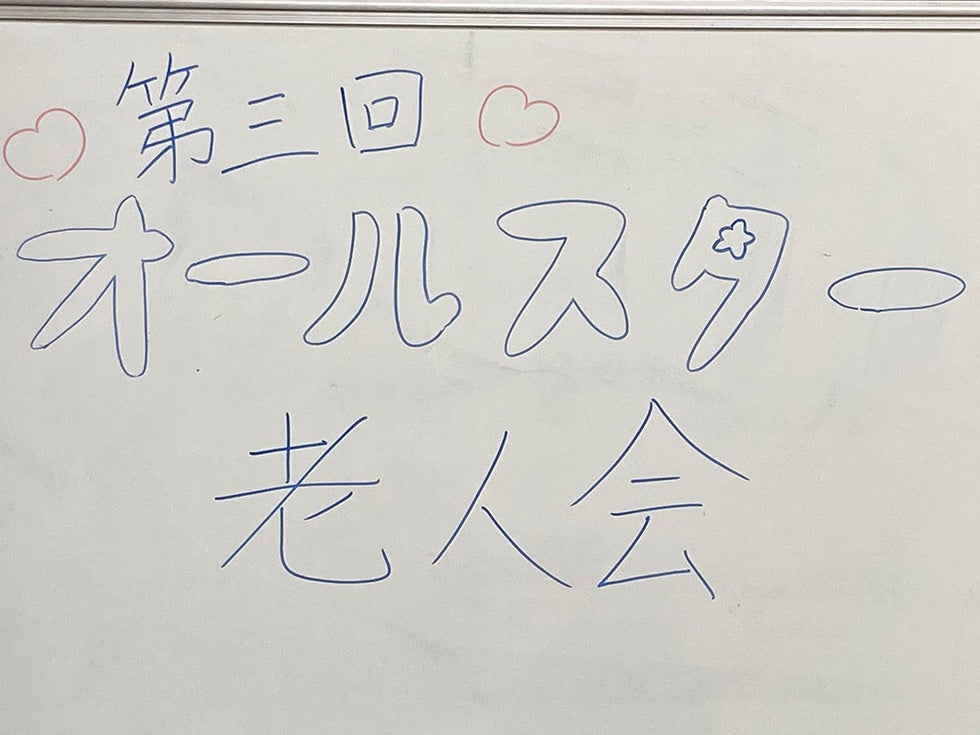 第三回
オールスター
老人会